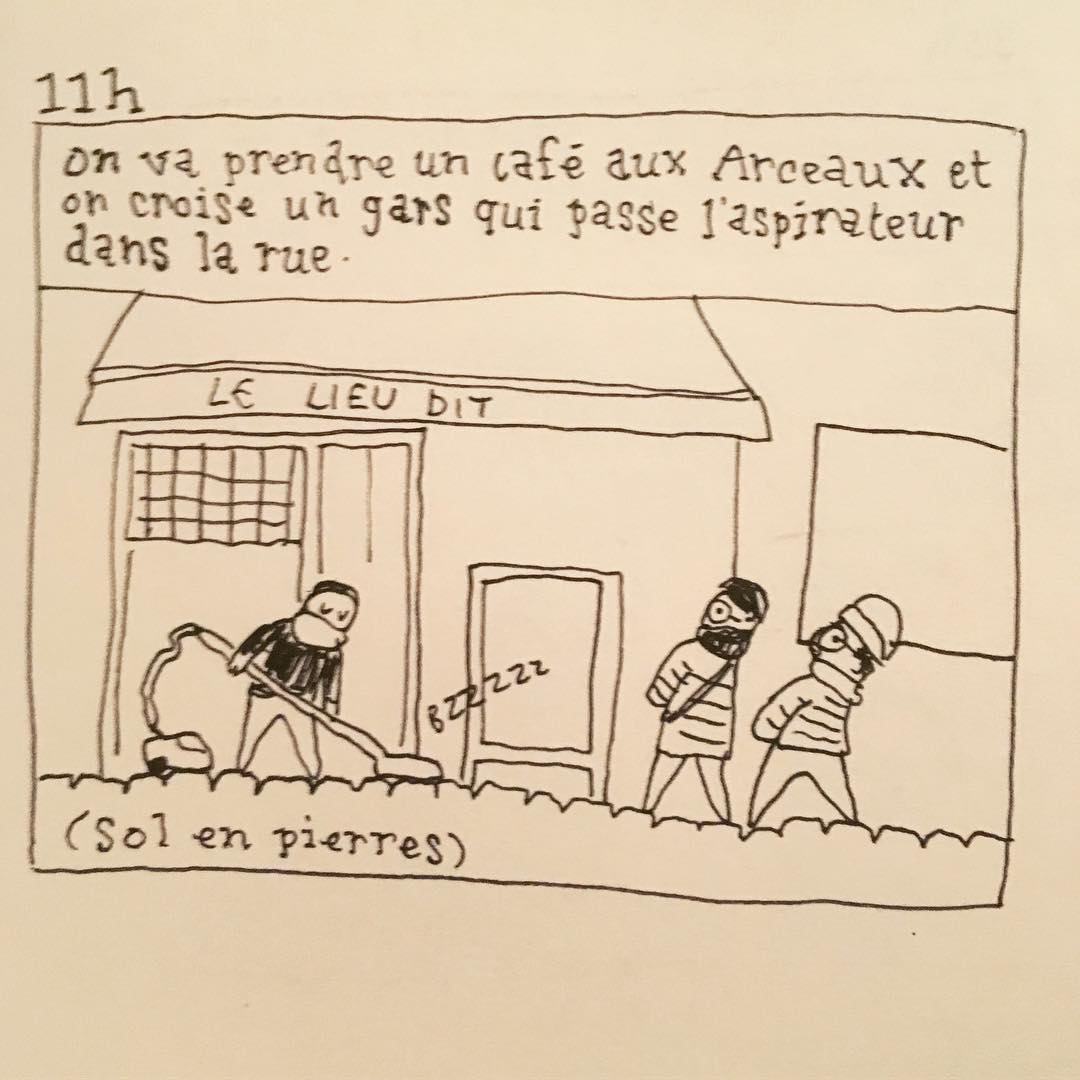 11h
on va prendre un café aux Arceaux et
on croise un gars qui passe l'aspirateur
dans la rue.
LE LIEU DIT
BZZZZZZ
(Sol en pierres)